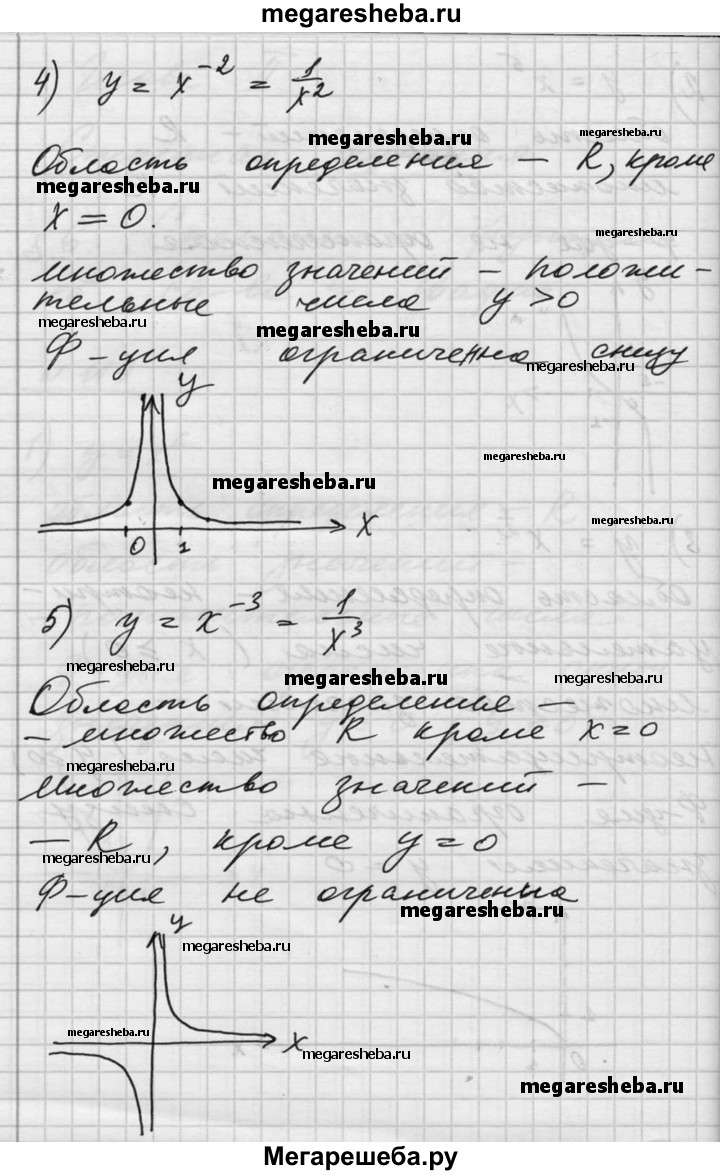 megaresheba.ru
4) y = x⁻² = 1/x²
megaresheba.ru
megaresheba.ru
Область определения — R, кроме
megaresheba.ru
x = 0.
megaresheba.ru
множество значений – положи-
тельные числа y > 0
megaresheba.ru
megaresheba.ru
Ф-ция ограниченна снизу
megaresheba.ru
y
megaresheba.ru
megaresheba.ru
megaresheba.ru
x
0 1
5) y = x⁻³ = 1/x³
megaresheba.ru
megaresheba.ru
megaresheba.ru
Область определенье —
– множество R кроме x = 0
megaresheba.ru
Множество значений –
— R, кроме y = 0
megaresheba.ru
Ф-ция не ограниченна
megaresheba.ru
y
megaresheba.ru
megaresheba.ru
x
megaresheba.ru
megaresheba.ru
Мегарешеба.ру